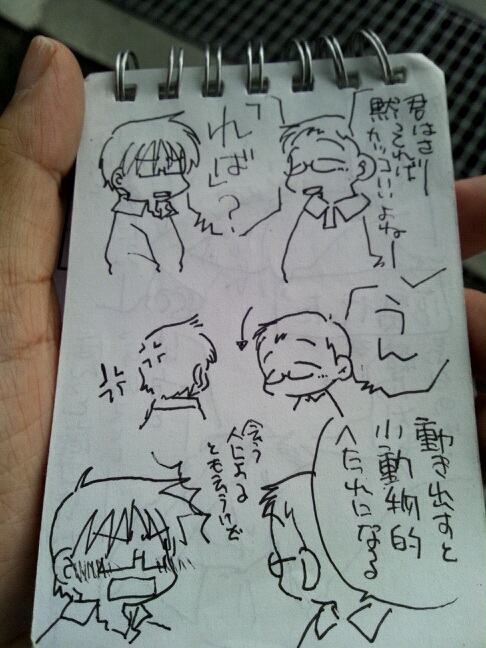 君はさー
黙ってれば
カッコいいよねー
「れば」？
うん
動き出すと
小動物的
へたれになる
会う
人による
とも言うけど